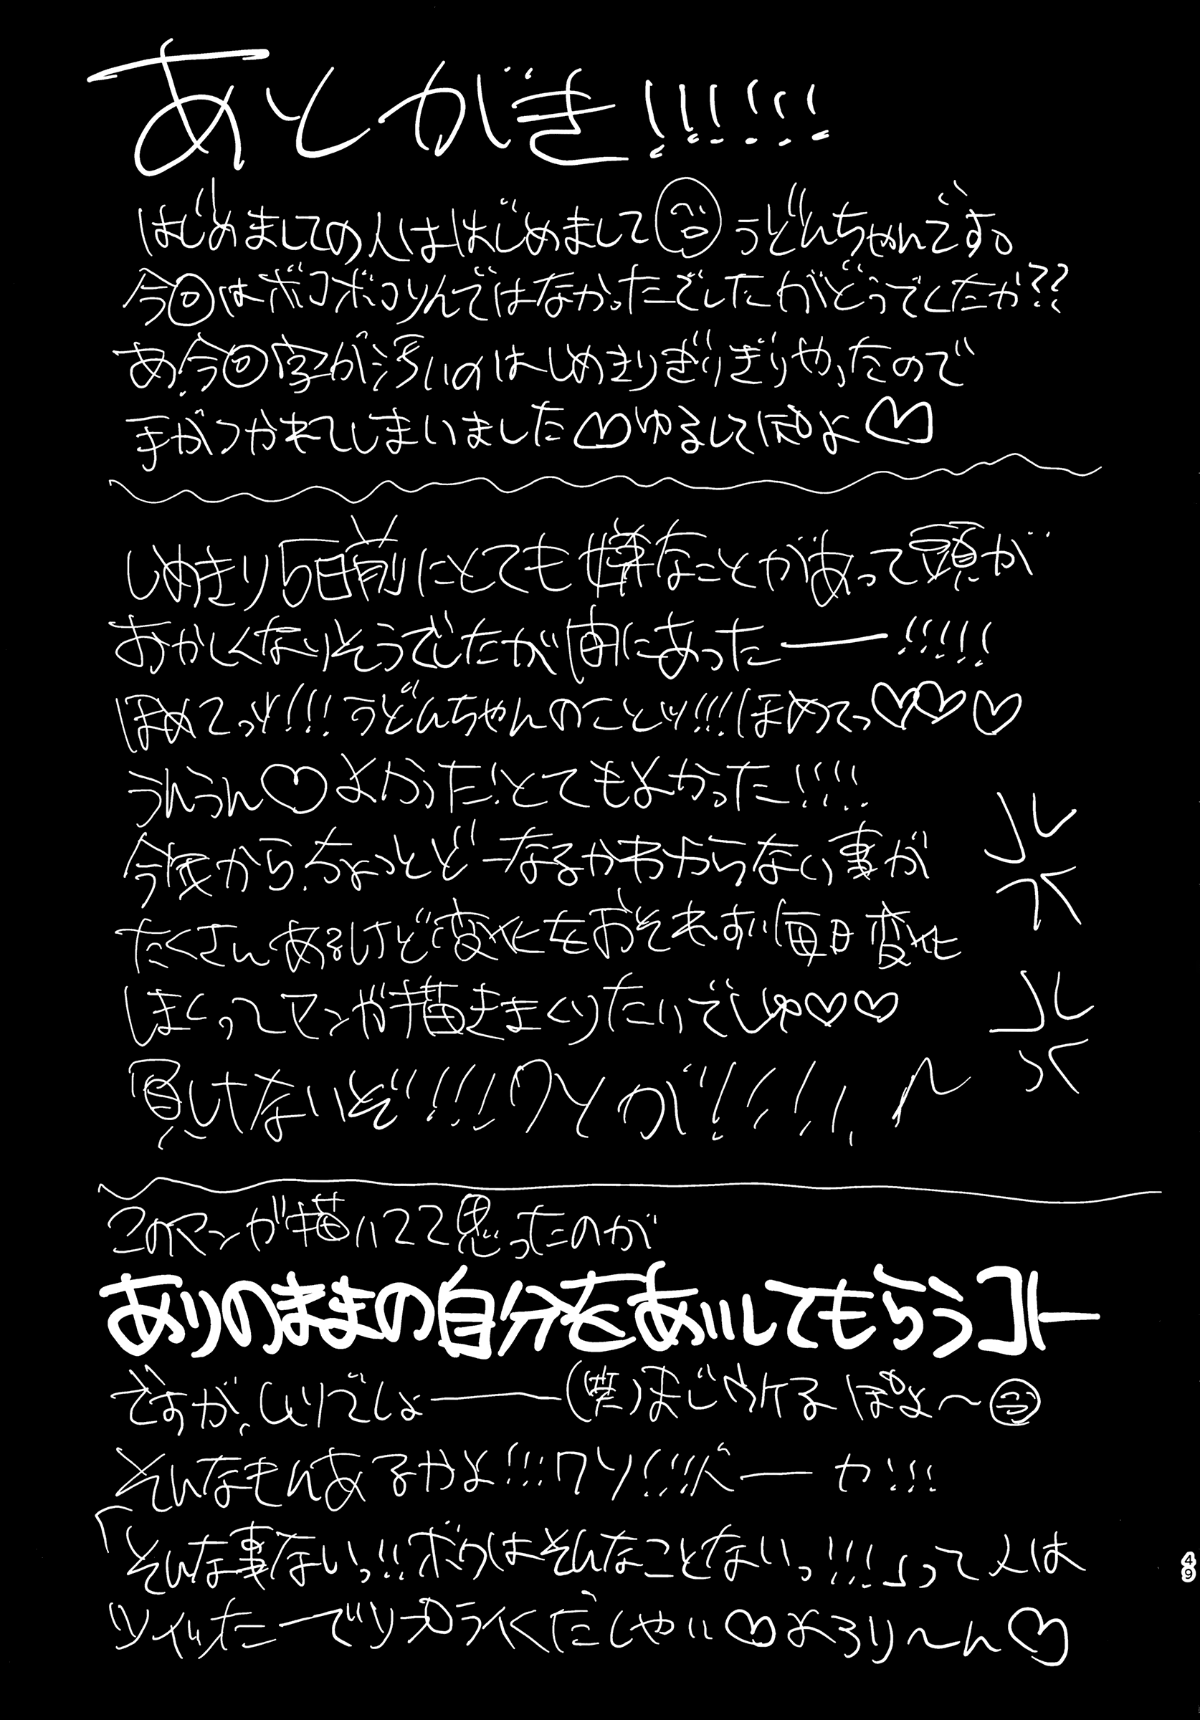 あとがき!!!!!!
はじめましての人ははじめまして うどんちゃんです。
今回はボコボコりんではなかったでしたがどうでしたか??
あ、今回字が汚いのはしめきりぎりぎりやったので
手がつかれてしまいました♡ゆるしてぽよ♡
しめきり5日前にとても嫌なことがあって頭が
おかしくなりそうでしたが間にあったー!!!!!
ほめてッッ!!!うどんちゃんのことッ!!!ほめてっ♡♡♡
うんうん♡よかった!とてもよかった!!!!
今後から、ちょっとどーなるかわからない事が
たくさんあるけど変化をおそれずに毎日変化
しまくってマンガ描きまくりたいでしゅ♡♡
負けないぞ!!!!クソが!!!!!
このマンガ描いてて思ったのが
ありのままの自分をあいしてもらうコトー
ですが、ムリでしょー(笑)まじウケるぽよ〜
そんなもんあるかよ!!!クソ!!!バーカ!!!
「そんな事ないっ!!ボクはそんなことないっ!!!」って人は
ツイッたーでリプライくだしゃい♡よろり〜ん♡
49